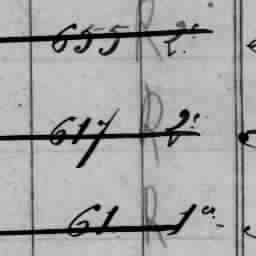 655 R 2ª
617 R 2ª
61 R 1ª